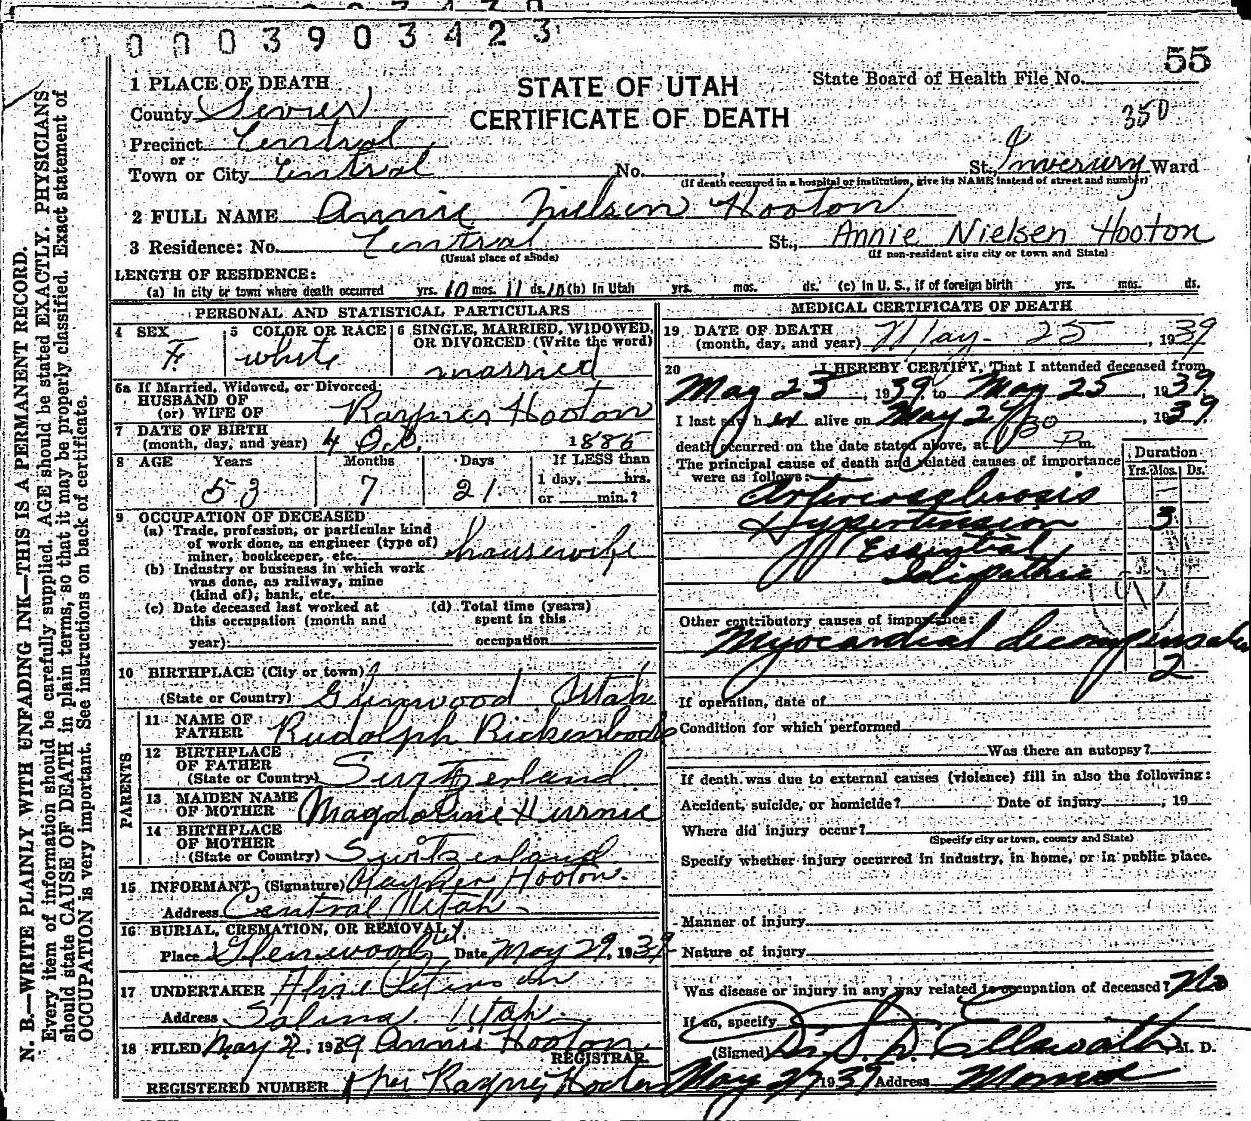 0 0 0 3 9 0 3 4 2 3
55
STATE OF UTAH
CERTIFICATE OF DEATH
State Board of Health File No.
350
1 PLACE OF DEATH
County Sevier
Precinct Central
or
Town or City Central No. St., Inverury Ward
(If death occurred in a hospital or institution, give its NAME instead of street and number)
2 FULL NAME Annie Nielsen Hooton
3 Residence: No. Central St., Annie Nielsen Hooton
(Usual place of abode) (If non-resident give city or town and State)
LENGTH OF RESIDENCE:
(a) In city or town where death occurred yrs. 10 mos. 11 ds. 10 (b) In Utah yrs. mos. ds. (c) In U. S., if of foreign birth yrs. mos. ds.
PERSONAL AND STATISTICAL PARTICULARS
4 SEX F. 5 COLOR OR RACE white 6 SINGLE, MARRIED, WIDOWED, OR DIVORCED (Write the word) married
6a If Married, Widowed, or Divorced
HUSBAND OF
(or) WIFE OF Rayner Hooton
7 DATE OF BIRTH
(month, day, and year) 4 Oct. 1885
8 AGE Years Months Days If LESS than
53 7 21 1 day, hrs.
or min.?
9 OCCUPATION OF DECEASED
(a) Trade, profession, or particular kind
of work done, as engineer (type of)
miner, bookkeeper, etc. housewife
(b) Industry or business in which work
was done, as railway, mine
(kind of); bank, etc.
(c) Date deceased last worked at
this occupation (month and
year):
(d) Total time (years)
spent in this
occupation
10 BIRTHPLACE (City or town)
(State or Country) Glenwood, Utah
PARENTS
11 NAME OF
FATHER Rudolph
12 BIRTHPLACE
OF FATHER
(State or Country) Switzerland
13 MAIDEN NAME
OF MOTHER Magdaline Hurnie
14 BIRTHPLACE
OF MOTHER
(State or Country) Switzerland
15 INFORMANT (Signature) Rayner Hooton.
Address Central Utah
16 BURIAL, CREMATION, OR REMOVAL
Place Glenwood Date May 29, 1939
17 UNDERTAKER
Address Salina, Utah
18 FILED May 27, 1939 Annie Hooton
REGISTRAR
REGISTERED NUMBER 1 per Rayner Hooton
MEDICAL CERTIFICATE OF DEATH
19 DATE OF DEATH
(month, day, and year) May - 25, 1939
20 I HEREBY CERTIFY, That I attended deceased from
May 23, 1939, to May 25, 1939
I last saw her alive on May 24, 1939.
death occurred on the date stated above, at 30 P m.
The principal cause of death and related causes of importance
were as follows:
Duration
Yrs. Mos. Ds.
Arteriosclerosis
Hypertension 3
Essential
Idiopathic
Other contributory causes of importance:
Myocardial decompensation
2
If operation, date of
Condition for which performed
Was there an autopsy?
If death was due to external causes (violence) fill in also the following:
Accident, suicide, or homicide? Date of injury , 19
Where did injury occur?
(Specify city or town, county and State)
Specify whether injury occurred in industry, in home, or in public place.
Manner of injury
Nature of injury
Was disease or injury in any way related to occupation of deceased? No
If so, specify
(Signed) Dr. S. D. Ellsworth, M. D.
May 27, 1939 Address Monroe
N. B.—WRITE PLAINLY WITH UNFADING INK—THIS IS A PERMANENT RECORD.
Every item of information should be carefully supplied. AGE should be stated EXACTLY. PHYSICIANS
should state CAUSE OF DEATH in plain terms, so that it may be properly classified. Exact statement of
OCCUPATION is very important. See instructions on back of certificate.